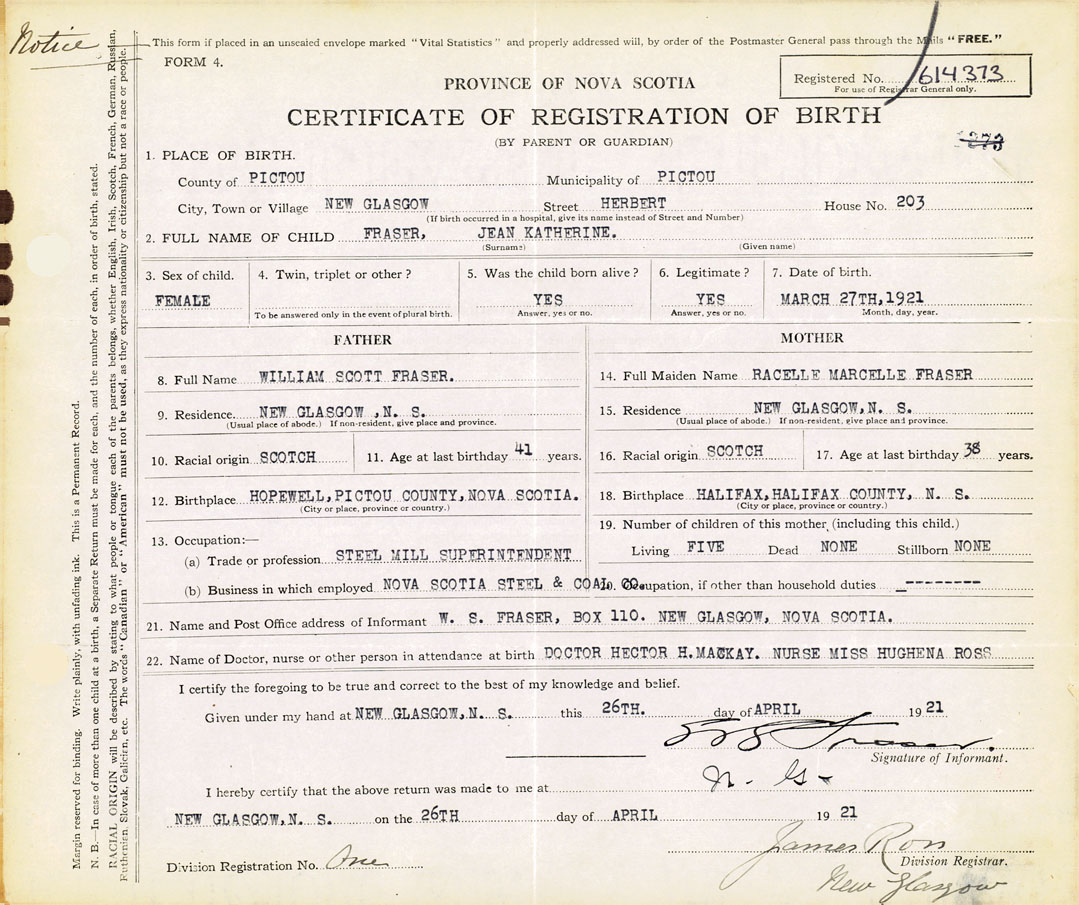 Notice
This form if placed in an unsealed envelope marked "Vital Statistics" and properly addressed will, by order of the Postmaster General pass through the Mails "FREE."
FORM 4.
Registered No. 614373
For use of Registrar General only.
PROVINCE OF NOVA SCOTIA
CERTIFICATE OF REGISTRATION OF BIRTH
(BY PARENT OR GUARDIAN)
1. PLACE OF BIRTH.
County of PICTOU Municipality of PICTOU
City, Town or Village NEW GLASGOW Street HERBERT House No. 203
(If birth occurred in a hospital, give its name instead of Street and Number)
2. FULL NAME OF CHILD FRASER, JEAN KATHERINE.
(Surname) (Given name)
3. Sex of child. 4. Twin, triplet or other? 5. Was the child born alive? 6. Legitimate? 7. Date of birth.
FEMALE YES YES MARCH 27TH,1921
To be answered only in the event of plural birth. Answer, yes or no. Answer, yes or no. Month, day, year.
FATHER MOTHER
8. Full Name WILLIAM SCOTT FRASER. 14. Full Maiden Name RACELLE MARCELLE FRASER
9. Residence. NEW GLASGOW ,N. S. 15. Residence NEW GLASGOW,N. S.
(Usual place of abode.) If non-resident, give place and province. (Usual place of abode.) If non-resident, give place and province.
10. Racial origin SCOTCH 11. Age at last birthday 41 years. 16. Racial origin SCOTCH 17. Age at last birthday 38 years.
12. Birthplace HOPEWELL,PICTOU COUNTY,NOVA SCOTIA. 18. Birthplace HALIFAX,HALIFAX COUNTY, N. S.
(City or place, province or country.) (City or place, province or country.)
13. Occupation:— 19. Number of children of this mother (including this child.)
(a) Trade or profession STEEL MILL SUPERINTENDENT Living FIVE Dead NONE Stillborn NONE
(b) Business in which employed NOVA SCOTIA STEEL & COAL CO. 20. Occupation, if other than household duties _--------
21. Name and Post Office address of Informant W. S. FRASER, BOX 110. NEW GLASGOW, NOVA SCOTIA.
22. Name of Doctor, nurse or other person in attendance at birth DOCTOR HECTOR H.MACKAY. NURSE MISS HUGHENA ROSS
I certify the foregoing to be true and correct to the best of my knowledge and belief.
Given under my hand at NEW GLASGOW,N. S. this 26TH. day of APRIL 19 21
W S Fraser.
Signature of Informant.
I hereby certify that the above return was made to me at N. G-
NEW GLASGOW,N. S. on the 26TH day of APRIL 19 21
James Ross
Division Registration No. One Division Registrar.
New Glasgow
Margin reserved for binding. Write plainly, with unfading ink. This is a Permanent Record.
N. B.—In case of more than one child at a birth, a Separate Return must be made for each, and the number of each, in order of birth, stated.
RACIAL ORIGIN will be described by stating to what people or tongue each of the parents belongs, whether English, Irish, Scotch, French, German, Russian,
Ruthenian, Slovak, Galician, etc. The words "Canadian" or "American" must not be used, as they express nationality or citizenship but not a race or people.